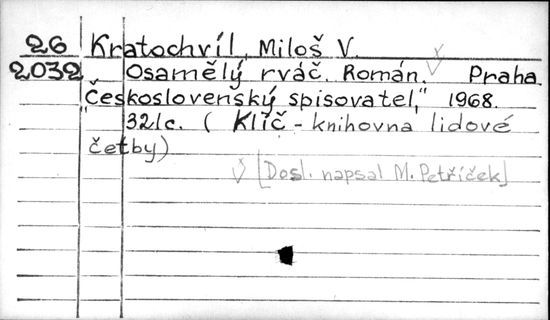 26 Kratochvíl, Miloš V.
2032 Osamělý rváč. Román. Praha.
"Československý spisovatel," 1968.
321c. ( Klíč - knihovna lidové
četby)
[Dosl. napsal M. Petříček]